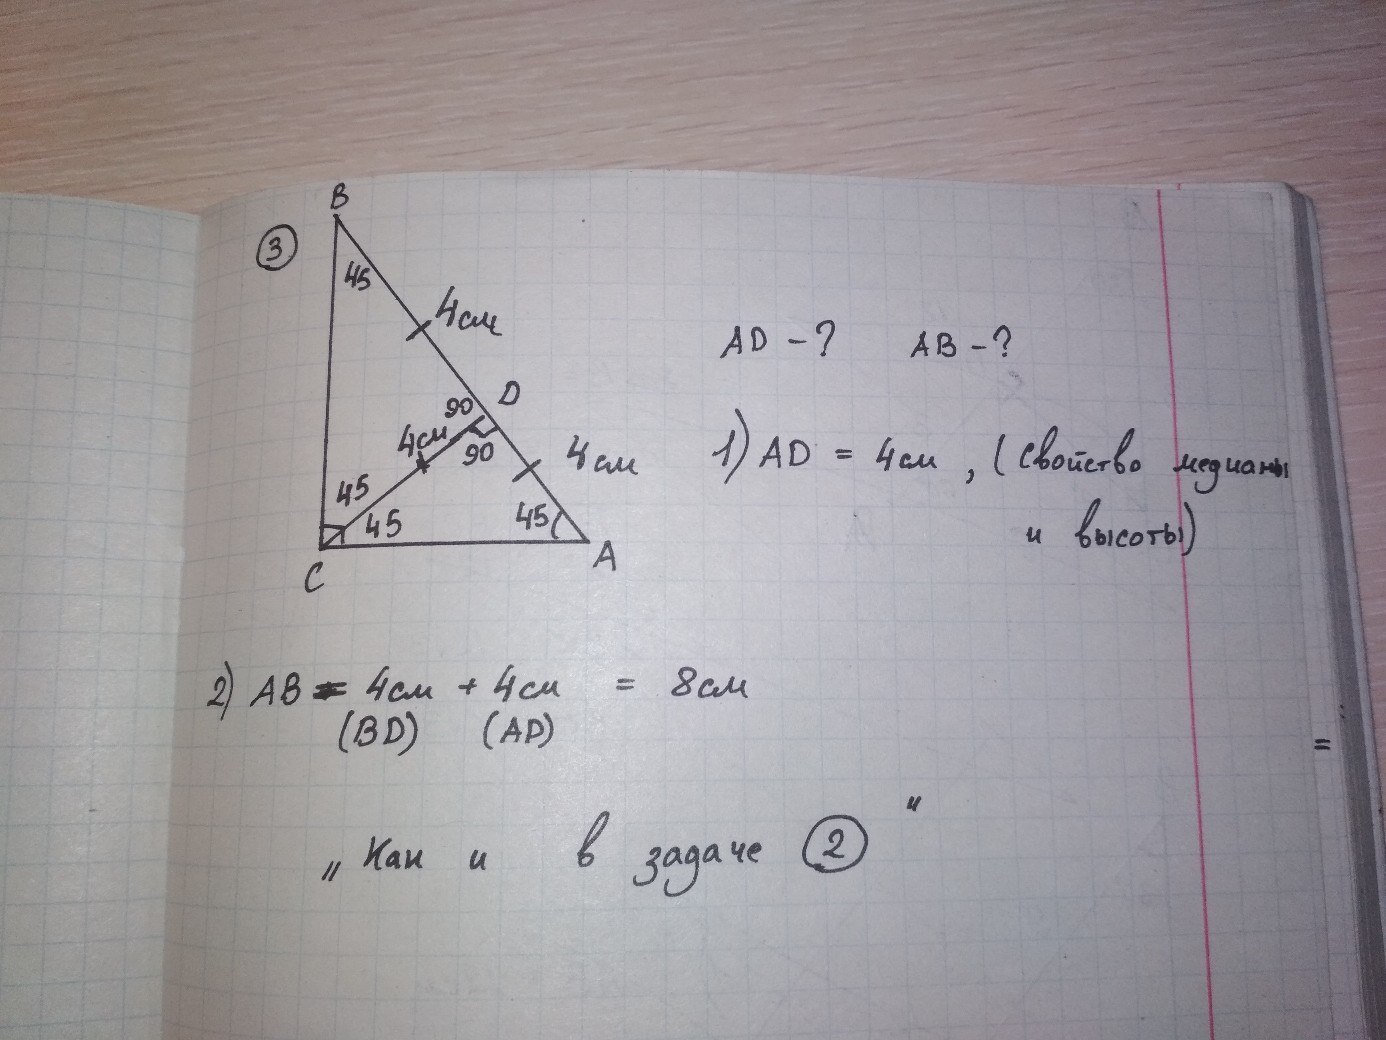 3
B
45
4см
D
90
4см
90
4см
45
45
45
C
A
AD - ? AB - ?
1) AD = 4см, (свойство медианы
и высоты)
2) AB = 4см + 4см = 8см
(BD) (AD)
„Как и в задаче 2"
=